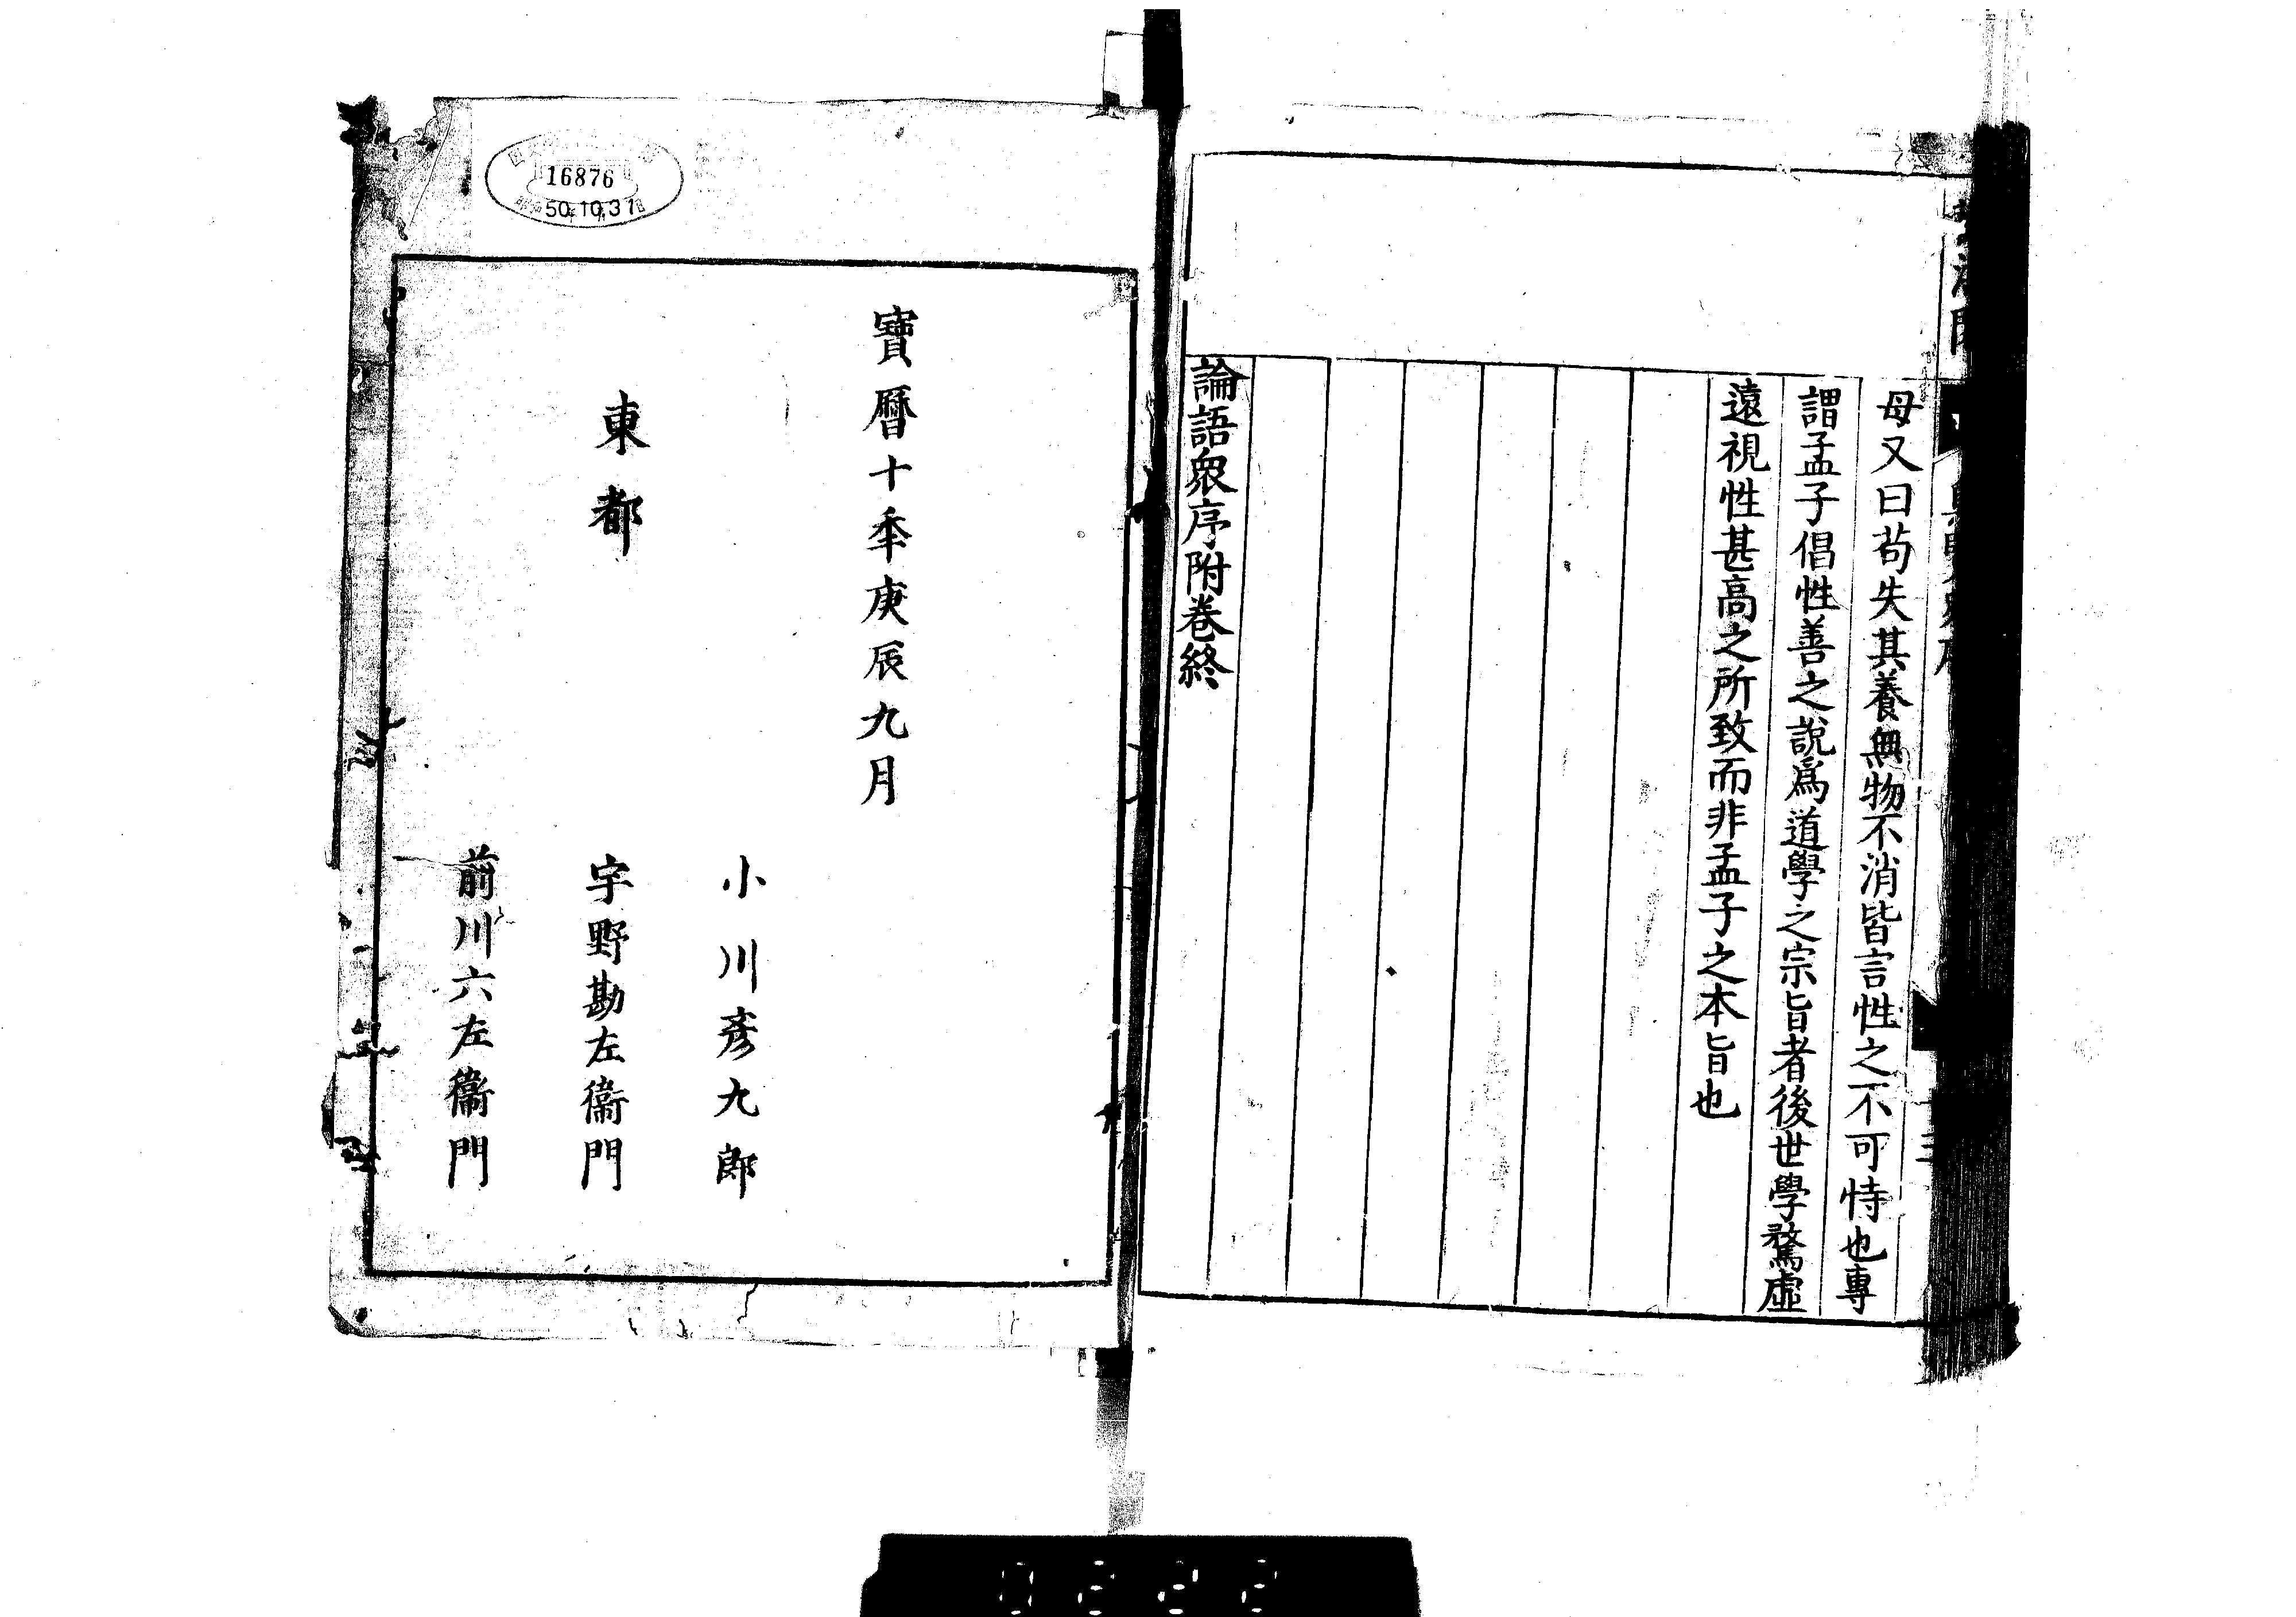 母又曰苟失其養無物不消皆言性之不可恃也專
謂孟子倡性善之說爲道學之宗旨者後世學騖虛
遠視性甚高之所致而非孟子之本旨也
論語衆序附卷終
寶曆十年庚辰九月
小川彥九郎
東都
宇野勘左衞門
前川六左衞門
16876
50.10.31
0222